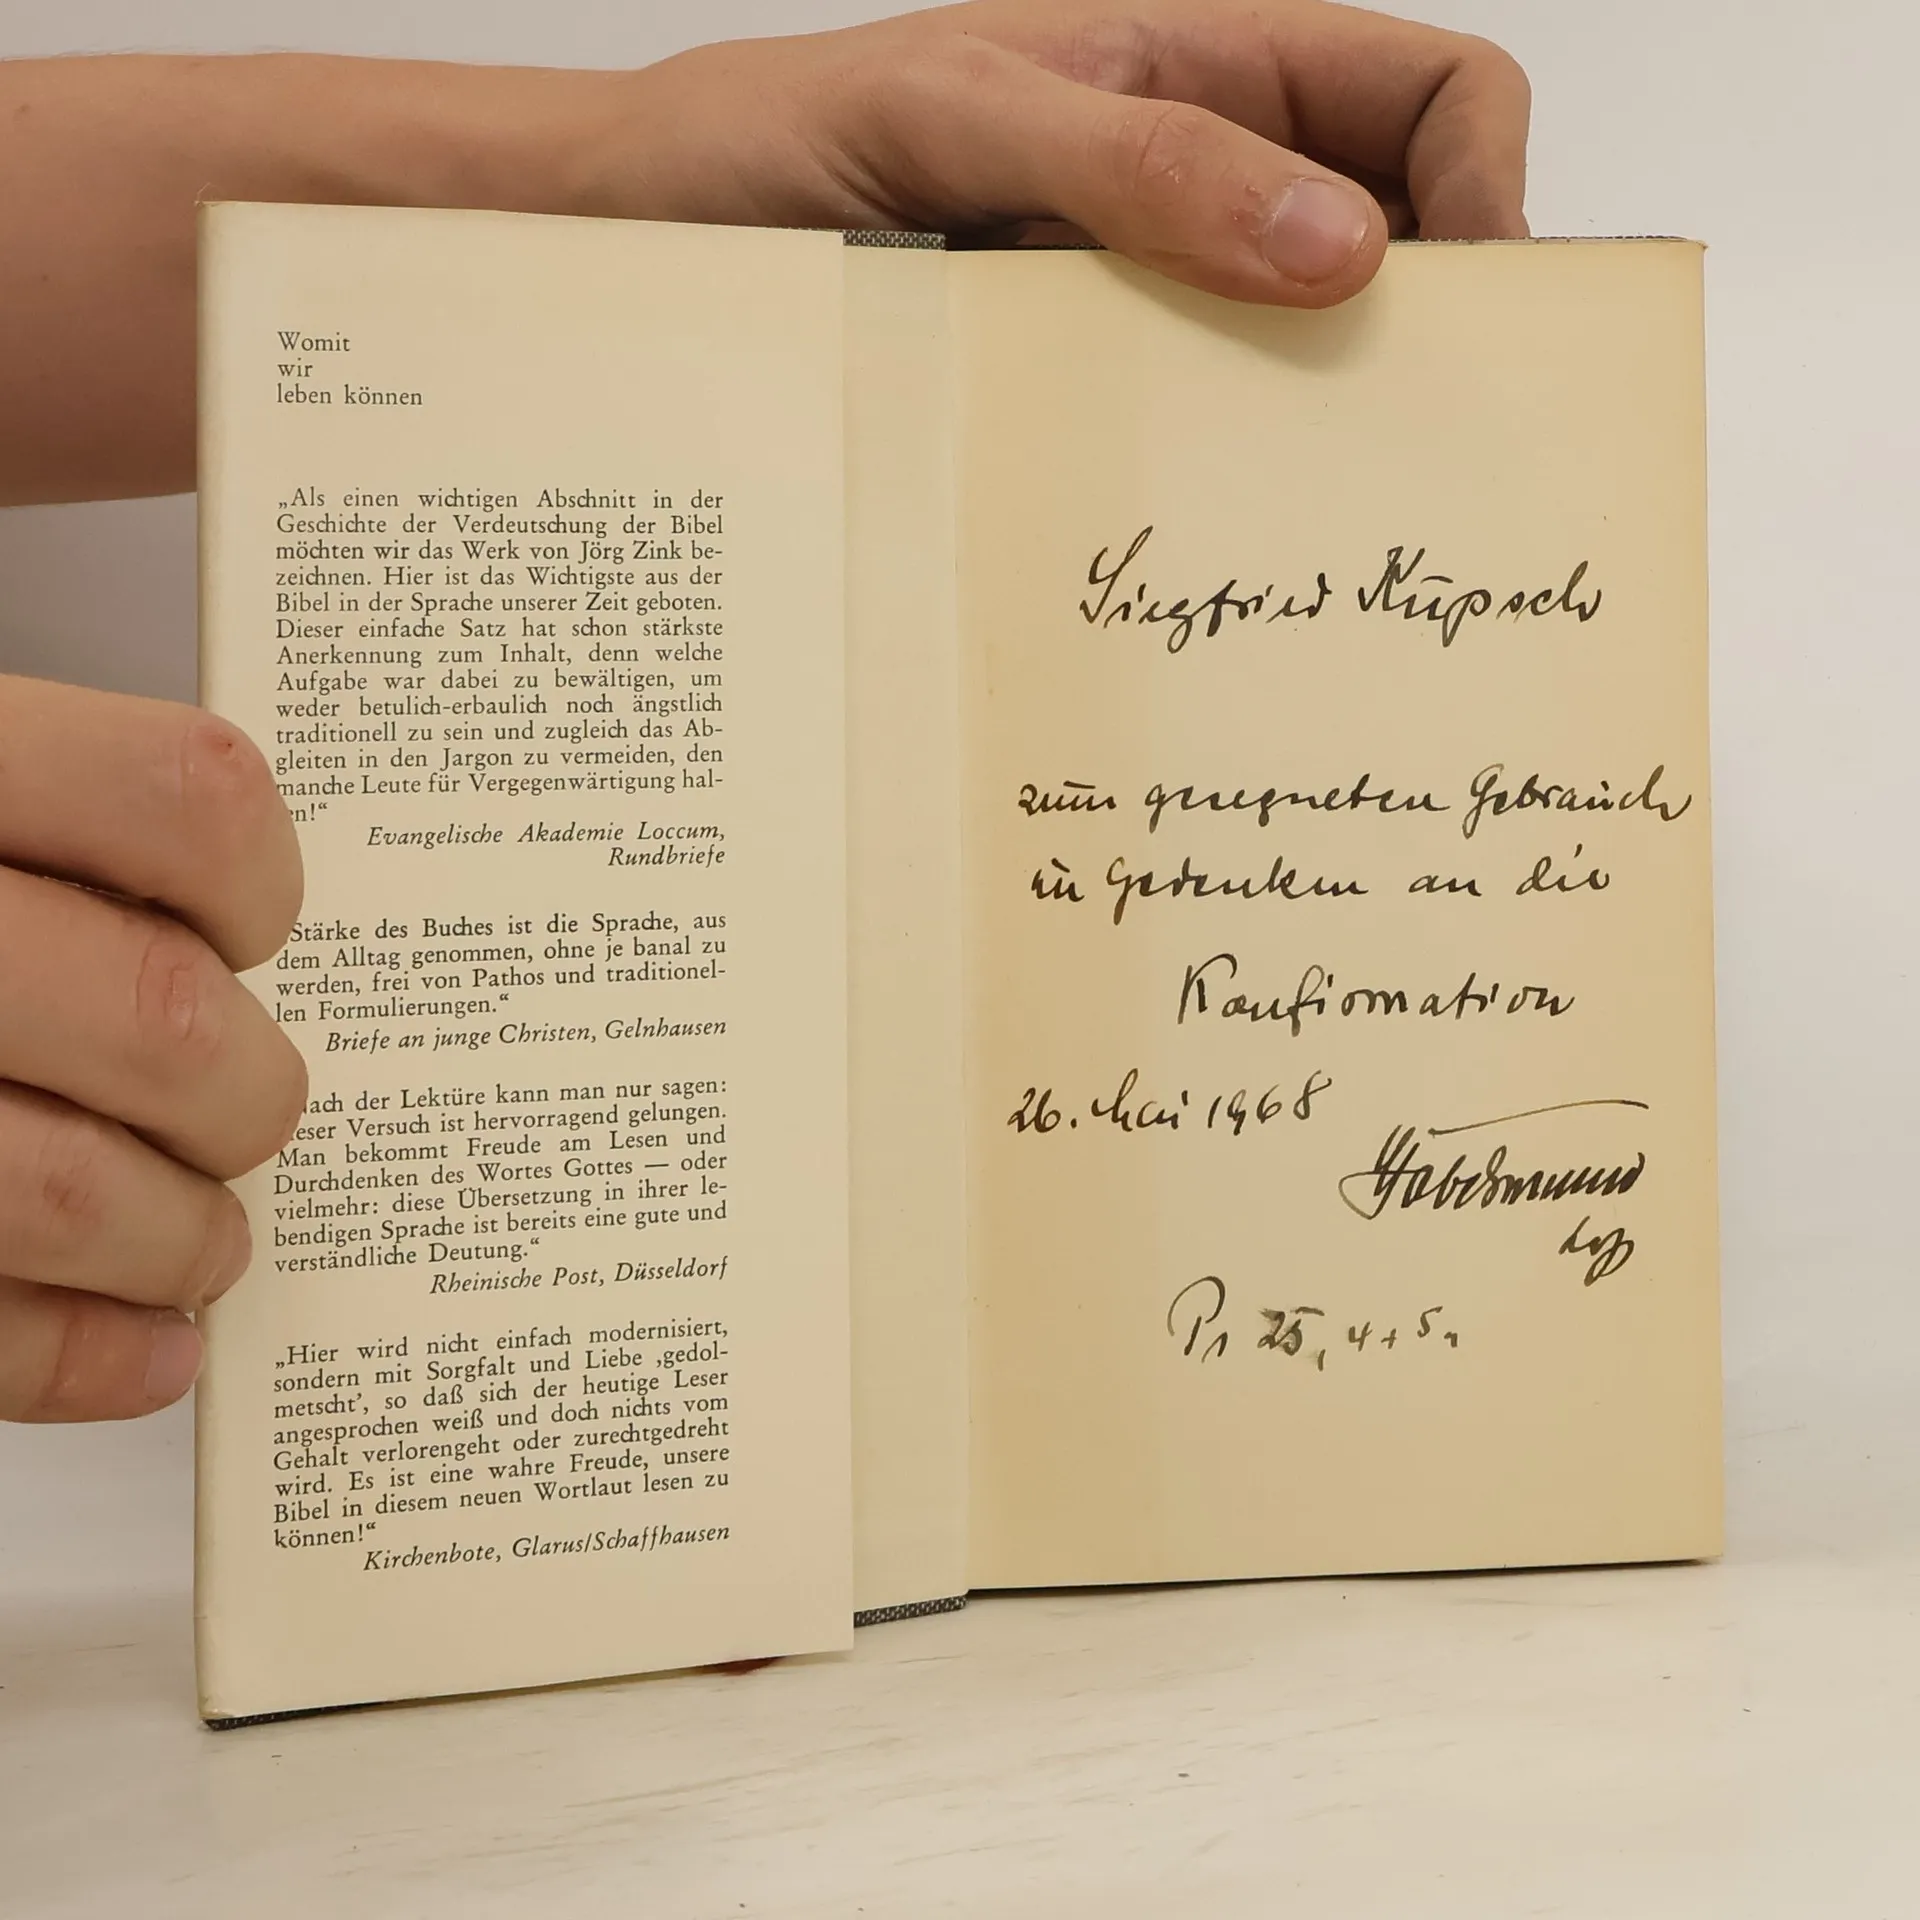 Womit
wir
leben können
„Als einen wichtigen Abschnitt in der
Geschichte der Verdeutschung der Bibel
möchten wir das Werk von Jörg Zink be-
zeichnen. Hier ist das Wichtigste aus der
Bibel in der Sprache unserer Zeit geboten.
Dieser einfache Satz hat schon stärkste
Anerkennung zum Inhalt, denn welche
Aufgabe war dabei zu bewältigen, um
weder betulich-erbaulich noch ängstlich
traditionell zu sein und zugleich das Ab-
gleiten in den Jargon zu vermeiden, den
manche Leute für Vergegenwärtigung hal-
en!“
Evangelische Akademie Loccum,
Rundbriefe
Stärke des Buches ist die Sprache, aus
dem Alltag genommen, ohne je banal zu
werden, frei von Pathos und traditionel-
len Formulierungen.“
Briefe an junge Christen, Gelnhausen
ach der Lektüre kann man nur sagen:
ieser Versuch ist hervorragend gelungen.
Man bekommt Freude am Lesen und
Durchdenken des Wortes Gottes — oder
vielmehr: diese Übersetzung in ihrer le-
bendigen Sprache ist bereits eine gute und
verständliche Deutung.“
Rheinische Post, Düsseldorf
„Hier wird nicht einfach modernisiert,
sondern mit Sorgfalt und Liebe ‚gedol-
metscht’, so daß sich der heutige Leser
angesprochen weiß und doch nichts vom
Gehalt verlorengeht oder zurechtgedreht
wird. Es ist eine wahre Freude, unsere
Bibel in diesem neuen Wortlaut lesen zu
können!“
Kirchenbote, Glarus/Schaffhausen
Siegfried Kupsch
zum gesegneten Gebrauch
in Gedenken an die
Konfirmation
26. Mai 1968
Ps 25, 4+5